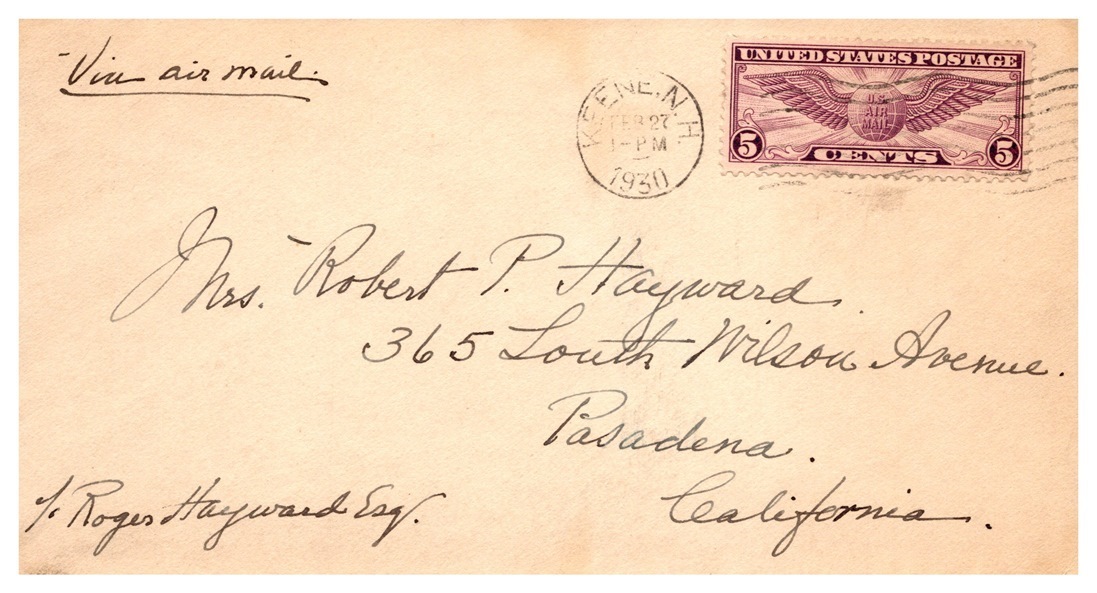 Via air mail.
KEENE, N.H.
FEB 27
1-PM
1930
UNITED STATES POSTAGE
U.S.
AIR
MAIL
5 CENTS 5
Mrs. Robert P. Hayward.
365 South Wilson Avenue.
Pasadena.
California.
c/o Roger Hayward Esq.